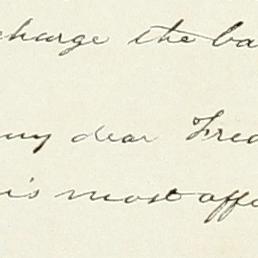 charge the ba
my dear Fred
is most affe